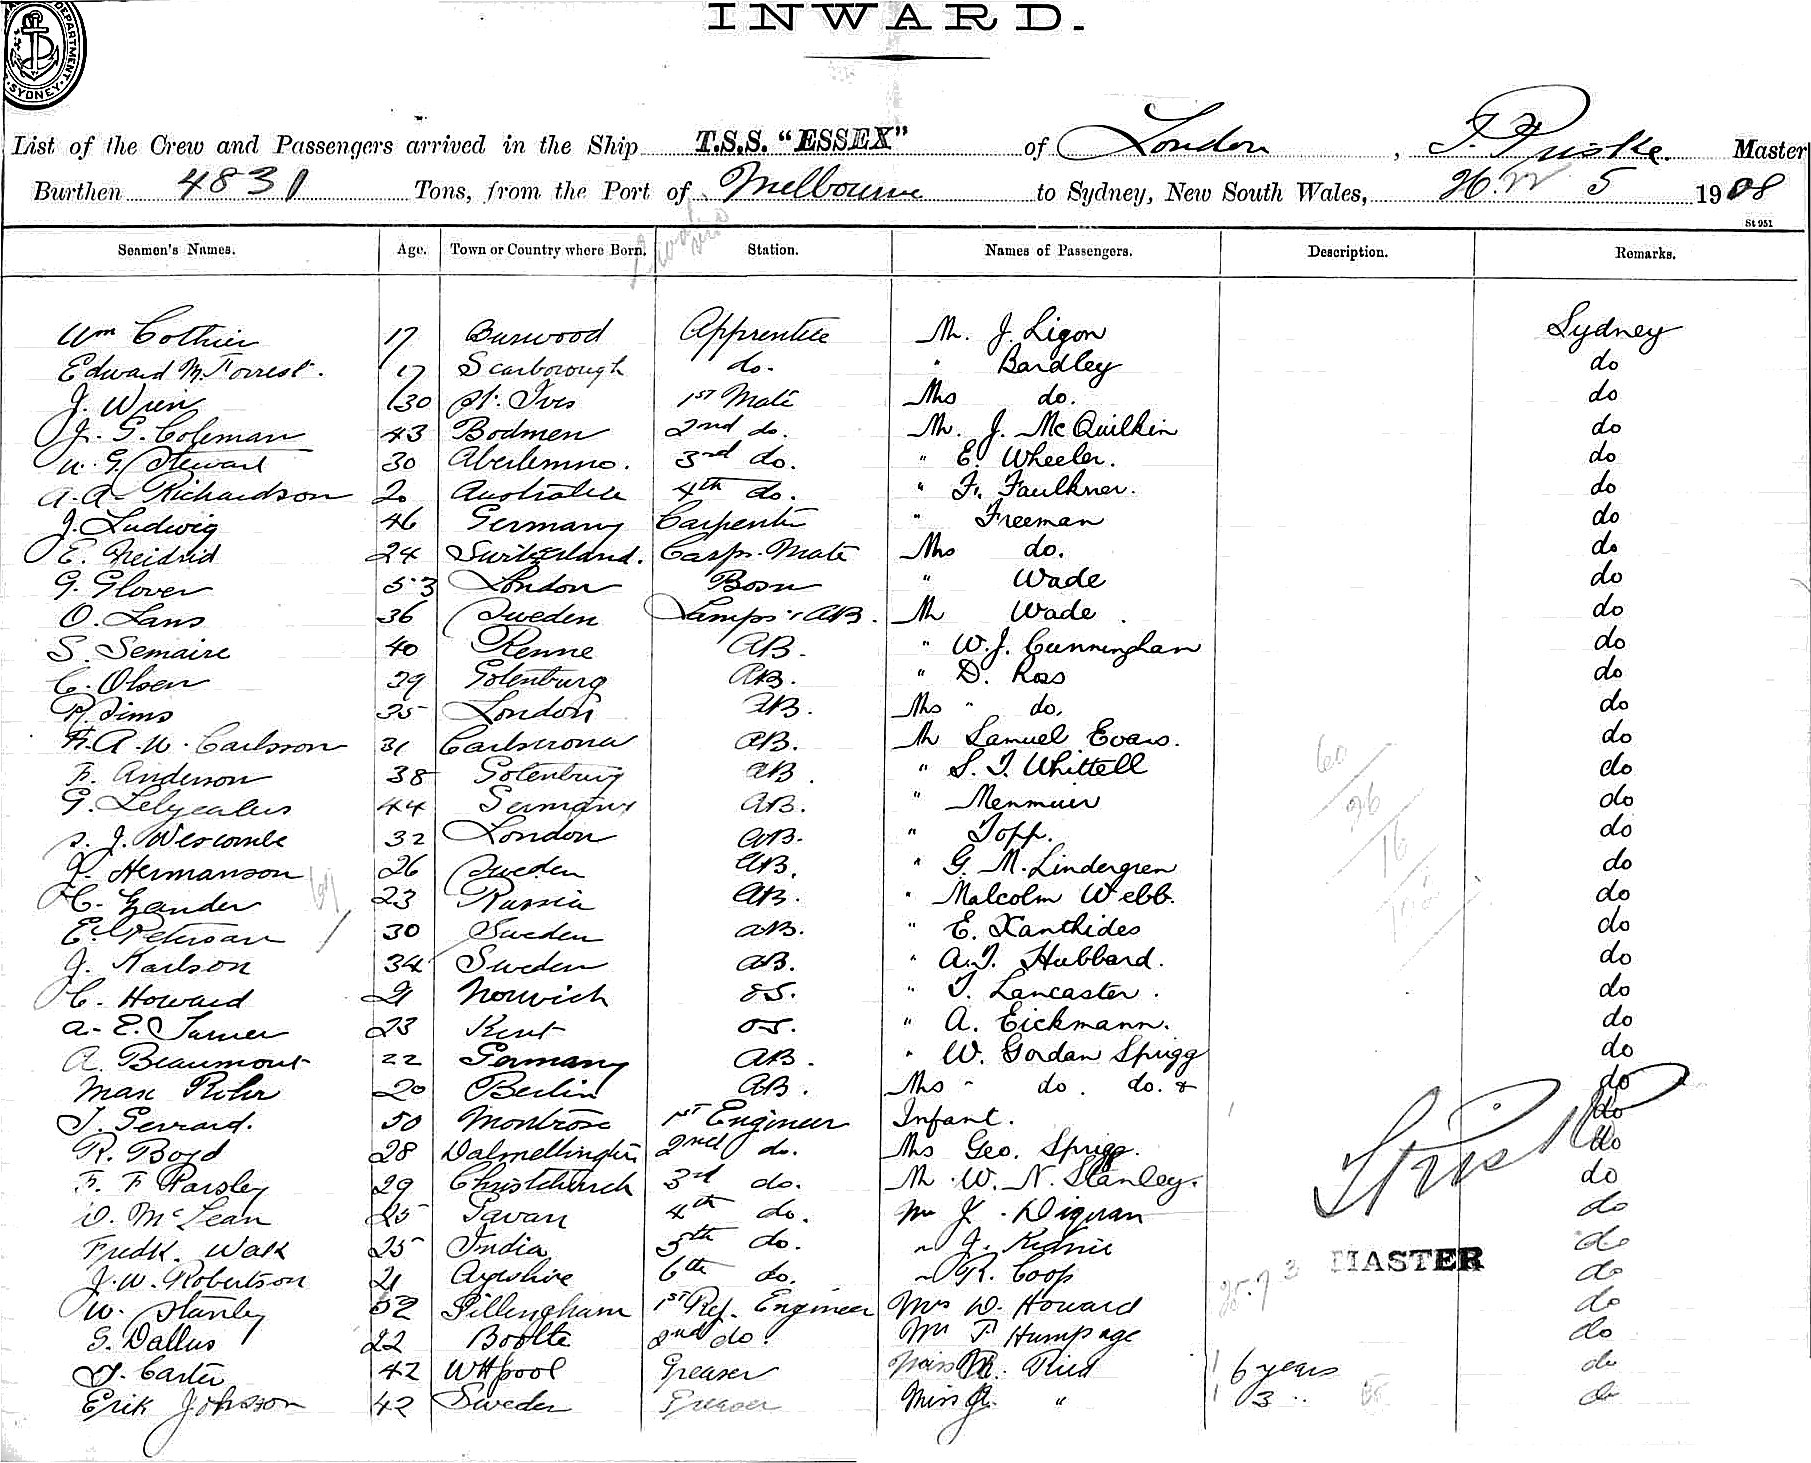 DEPARTMENT
SYDNEY
INWARD.
List of the Crew and Passengers arrived in the Ship T.S.S. "ESSEX" of London, Master
Burthen 4831 Tons, from the Port of Melbourne to Sydney, New South Wales, 5 1908
St 951
Seamen's Names. Age. Town or Country where Born. Station. Names of Passengers. Description. Remarks.
Wm Cothier 17 Burwood Apprentice Mr. J. Ligon Sydney
Edward M. Forrest. 17 Scarborough do. " Bardley do
J. Wren 30 St. Ives 1st Mate Mrs do. do
J. G. Coleman 43 Bodmen 2nd do. Mr. J. McQuilkin do
W. G. Stewart 30 Aberlemno. 3rd do. " E. Wheeler. do
A. A. Richardson 20 Australia 4th do. " F. Faulkner. do
J. Ludwig 46 Germany Carpenter " Freeman do
E. Neidrid 24 Switzerland. Carp. Mate Mrs do. do
G. Glover 53 London Bosn " Wade do
O. Lans 36 Sweden Lamps & AB. Mr Wade do
S. Semaire 40 Renne AB. " W. J. Cunningham do
C. Olsen 29 Gotenburg AB. " D. Ross do
R. Sims 35 London AB. Mrs " do. do
F. A. W. Carlsson 31 Carlscrona AB. Mr Samuel Evans. do
F. Anderson 38 Gotenburg AB. " S. T. Whittell do
G. 44 Germany AB. " Menmuir do
S. J. Wescombe 32 London AB. " Topp. do
J. Hermanson 26 Sweden AB. " G. M. Lindergren do
C. Zander 23 Russia AB. " Malcolm Webb. do
E. Peterson 30 Sweden AB. " E. Xanthides do
J. Karlson 34 Sweden AB. " A. T. Hubbard. do
C. Howard 21 Norwich OS. " T. Lancaster. do
A. E. Turner 23 Kent OS. " A. Eickmann. do
A. Beaumont 22 Germany AB. " W. Gordan Sprigg do
Max Rohr 20 Berlin AB. Mrs " do. do. & do
J. Gerrard. 50 Montrose 1st Engineer Infant. do
R. Boyd 28 Dalmellington 2nd do. Mrs Geo. Sprigg. do
F. F Parsley 29 Christchurch 3rd do. Mr. W. N. Stanley. do
D. McLean 25 Gavan 4th do. Mr J. Dignan do
Fredk. Walk 25 India 5th do. " J. do
J. W. Robertson 21 Ayrshire 6th do. " R. Coop do
MASTER
W. Stanley 52 Gillingham 1st Ref. Engineer Mrs W. Howard do
G. Dallas 22 Bootle 2nd do. Mr F Humpage do
J. Carter 42 W Hpool Greaser Miss M. Reid 6 years do
Erik Johsson 42 Sweden Greaser Miss J. " 3 " do